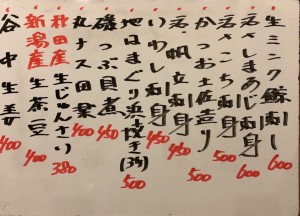 生ミンク鯨刺し 600
活さしまあじ刺し 600
活さこち刺身 500
かつお土佐造り 500
活帆立刺身 450
いわし刺身 450
地はまぐり浜焼き(3ケ) 500
磯つぶ貝煮 450
丸ナス田楽 400
秋田産生じゅんさい 380
新潟産生茶豆 400
谷中生姜 400